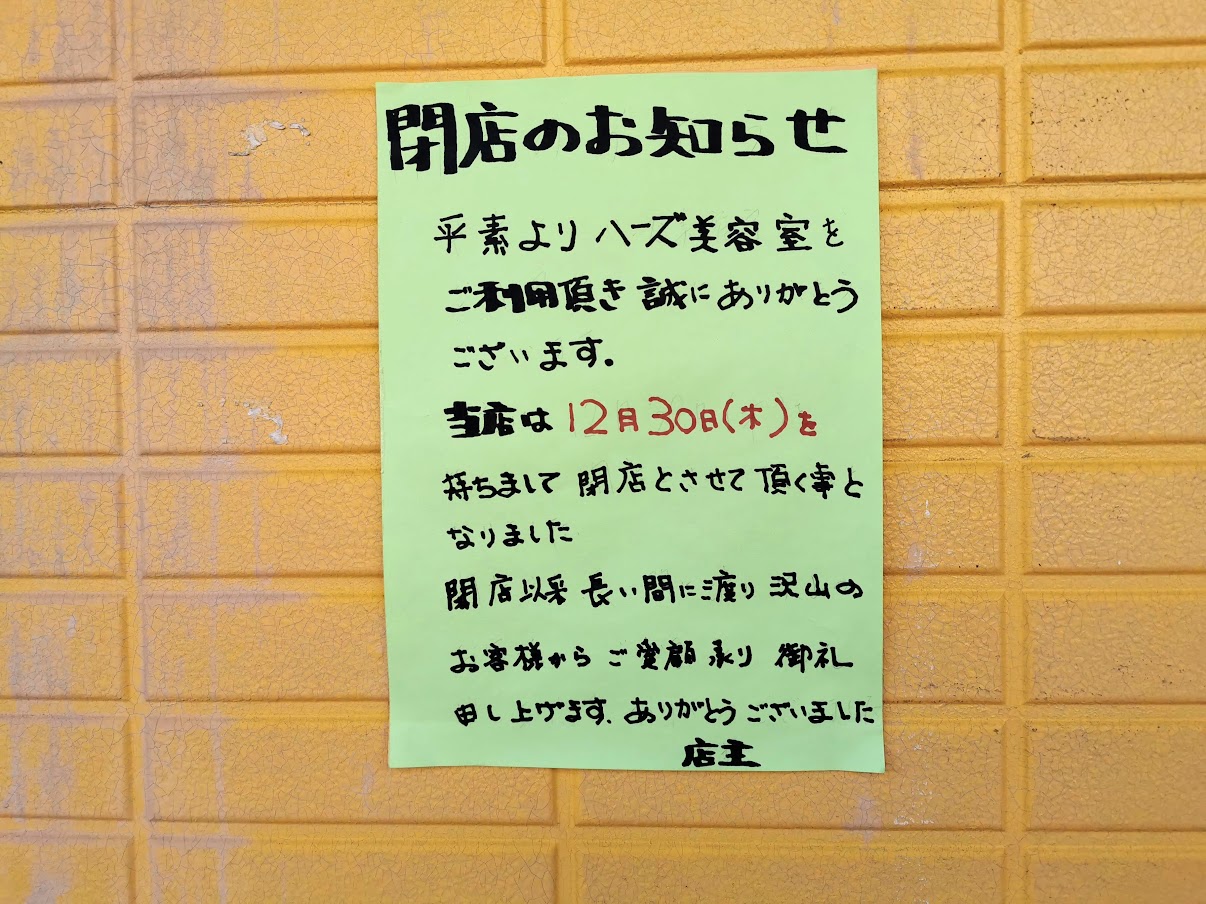 閉店のお知らせ
平素より ハーズ美容室を
ご利用頂き 誠にありがとう
ございます。
当店は 12月30日(木)を
持ちまして 閉店とさせて頂く事と
なりました
閉店以来 長い間に渡り 沢山の
お客様から ご愛顧承り 御礼
申し上げます、ありがとうございました
店主